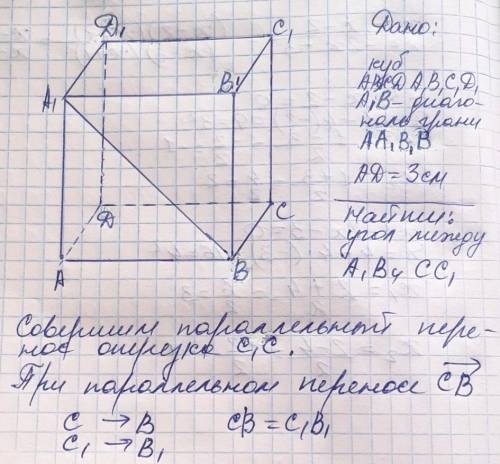 D₁
C₁
A₁
B₁
D
C
A
B
Дано:
куб
ABCDA₁B₁C₁D₁
A₁B – диаго-
наль грани
AA₁B₁B
AD = 3 см
Найти:
угол между
A₁B и CC₁
Совершим параллельный пере-
нос отрезка C₁C.
При параллельном переносе CB
C → B CB = C₁B₁
C₁ → B₁